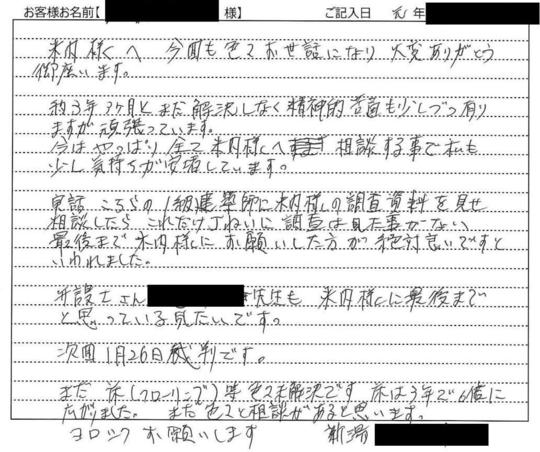 お客様お名前【 様】 ご記入日 元/年
米内様へ 今回も色々お世話になり 大変ありがとう
御座います。
約3年7ヶ月と まだ解決しなく精神的 も少しづつ有り
ますが頑張っています。
今は やっぱり 全て 米内様へ 相談する事で私も
少し気持ちが安 しています。
実話 こちらの1級建築師に米内様の調査資料を見せ
相談したら これだけ丁ねいに調査は見た事がない
最後まで米内様に お願いした方が 絶対良いですと
いわれました。
弁護士さん 先生も 米内様に最後まで
と思っている見たいです。
次回1月26日裁判です。
まだ 床(フローリング)等色々未解決です 床は3年で 倍に
広がりました。 まだ色々と相談があると思います。
ヨロシク お願いします 新潟